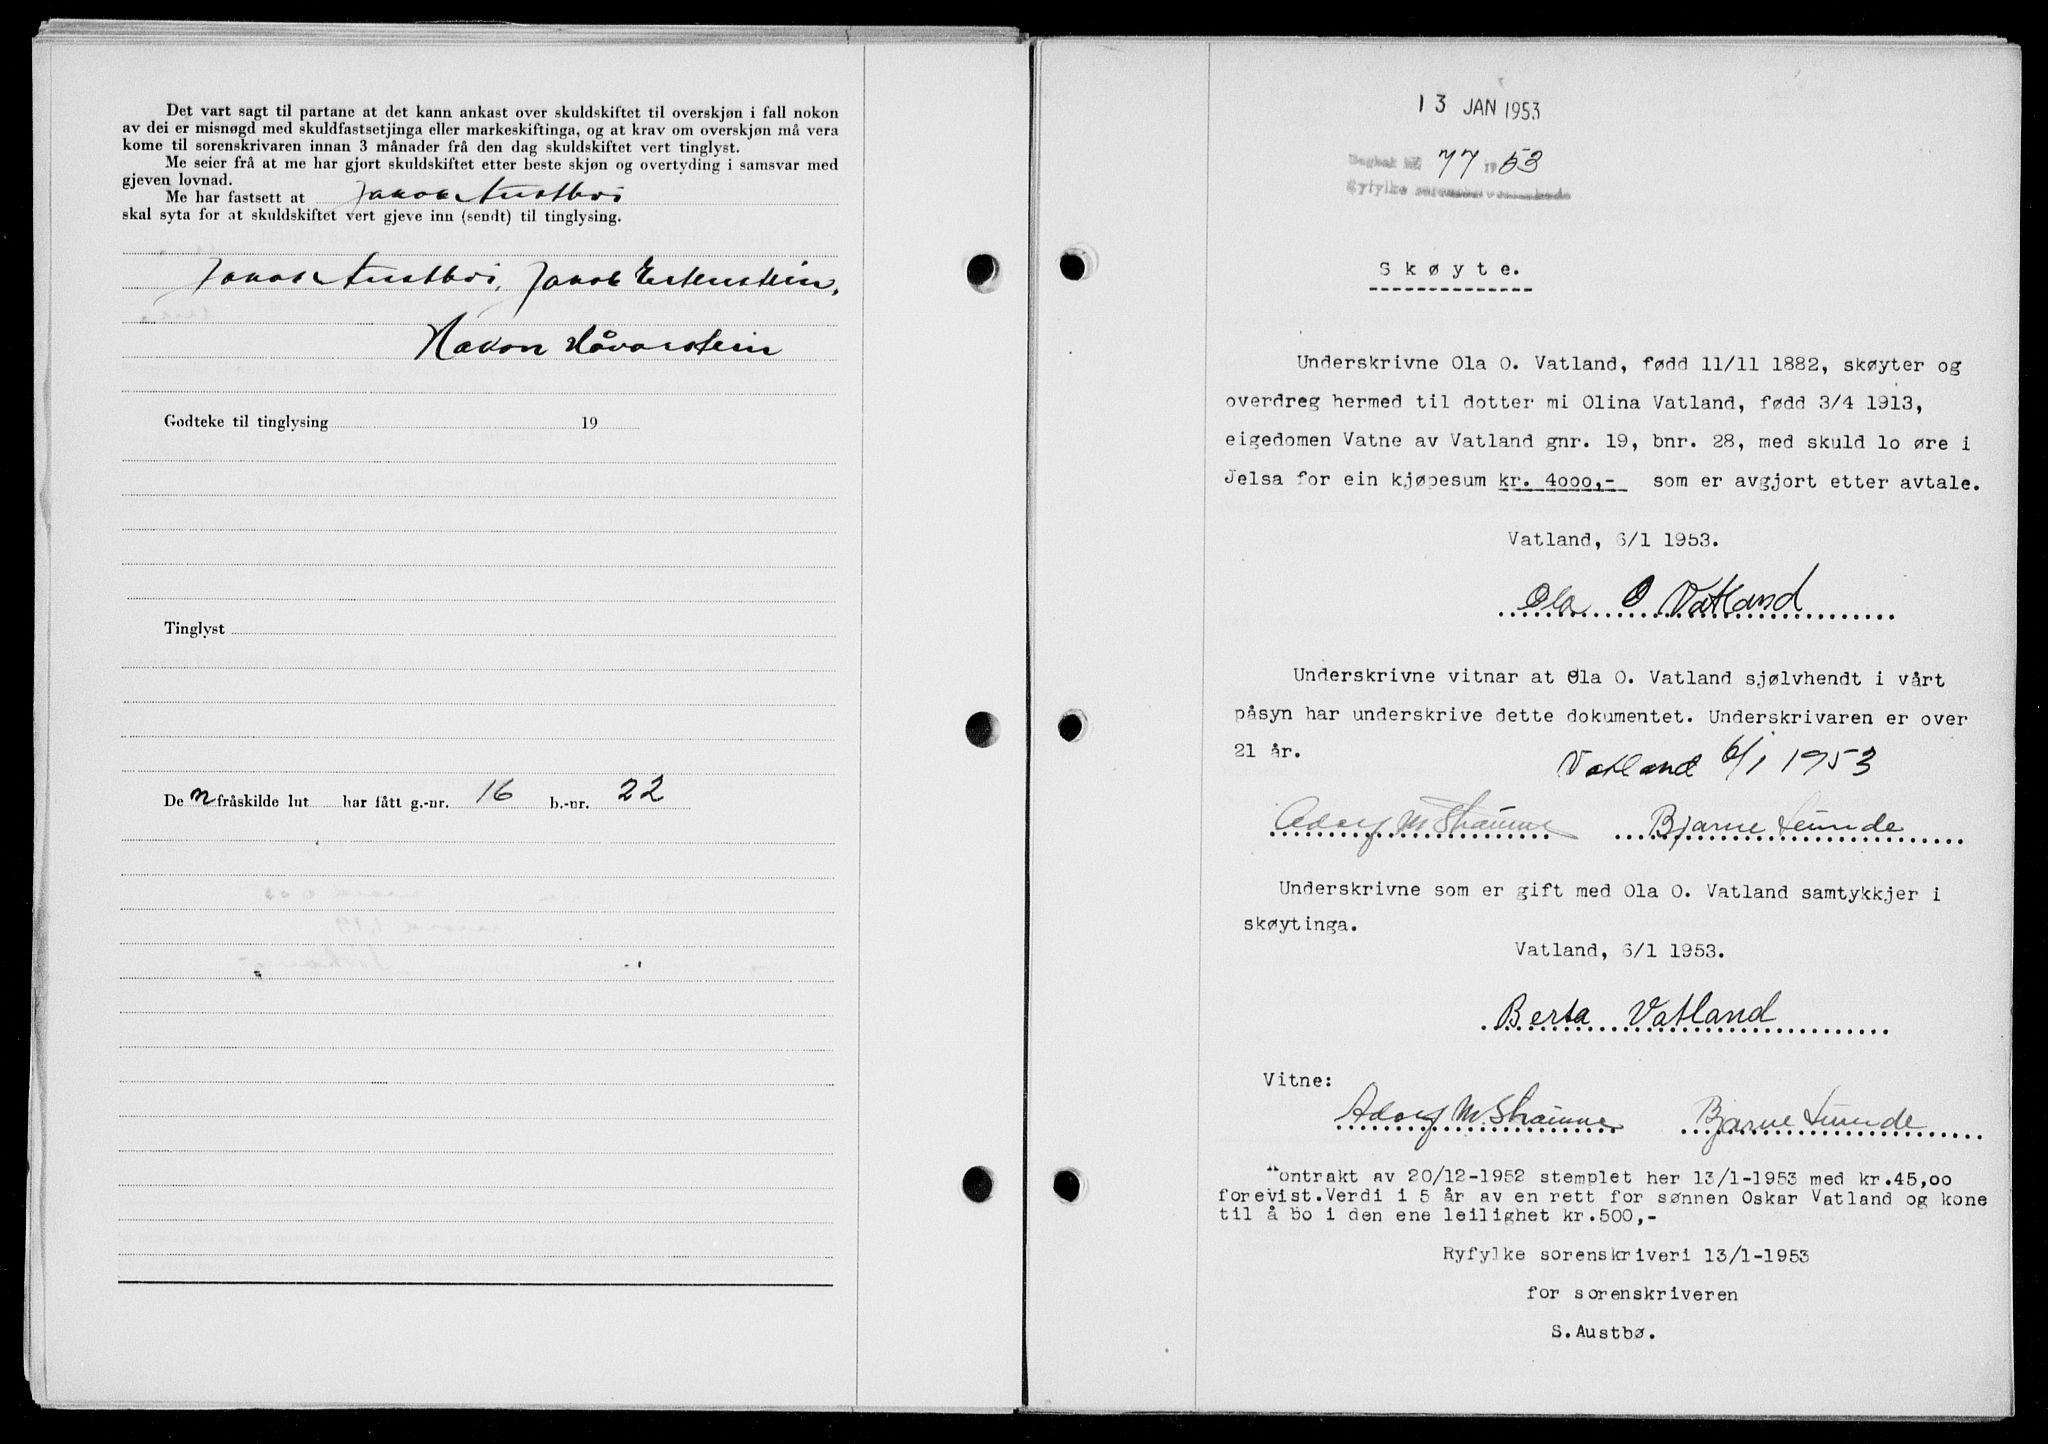 Det vart sagt til partane at det kann ankast over skuldskiftet til overskjøn i fall nokon
av dei er misnøgd med skuldfastsetjinga eller markeskiftinga, og at krav om overskjøn må vera
kome til sorenskrivaren innan 3 månader frå den dag skuldskiftet vert tinglyst.
Me seier frå at me har gjort skuldskiftet etter beste skjøn og overtyding i samsvar med
gjeven lovnad.
Me har fastsett at Jakob Austbø
skal syta for at skuldskiftet vert gjeve inn (sendt) til tinglysing.
Jakob Austbø, Jakob Ertenstein,
Håkon Håvarstein
Godteke til tinglysing 19
Tinglyst
De n fråskilde lut har fått g.-nr. 16 b.-nr. 22
13 JAN 1953
Dagbok nr. 77 1953
Ryfylke sorenskrivarembede
Skøyte.
Underskrivne Ola O. Vatland, fødd 11/11 1882, skøyter og
overdreg hermed til dotter mi Olina Vatland, fødd 3/4 1913,
eigedomen Vatne av Vatland gnr. 19, bnr. 28, med skuld lo øre i
Jelsa for ein kjøpesum kr. 4000,- som er avgjort etter avtale.
Vatland, 6/1 1953.
Ola O Vatland
Underskrivne vitnar at Ola O. Vatland sjølvhendt i vårt
påsyn har underskrive dette dokumentet. Underskrivaren er over
21 år.
Vatland 6/1 1953
Adolf M Bjarne Sunde
Underskrivne som er gift med Ola O. Vatland samtykkjer i
skøytinga.
Vatland, 6/1 1953.
Berta Vatland
Vitne:
Adolf M Bjarne Sunde
Kontrakt av 20/12-1952 stemplet her 13/1-1953 med kr.45,00
forevist.Verdi i 5 år av en rett for sønnen Oskar Vatland og kone
til å bo i den ene leilighet kr.500,-
Ryfylke sorenskriveri 13/1-1953
for sorenskriveren
S.Austbø.